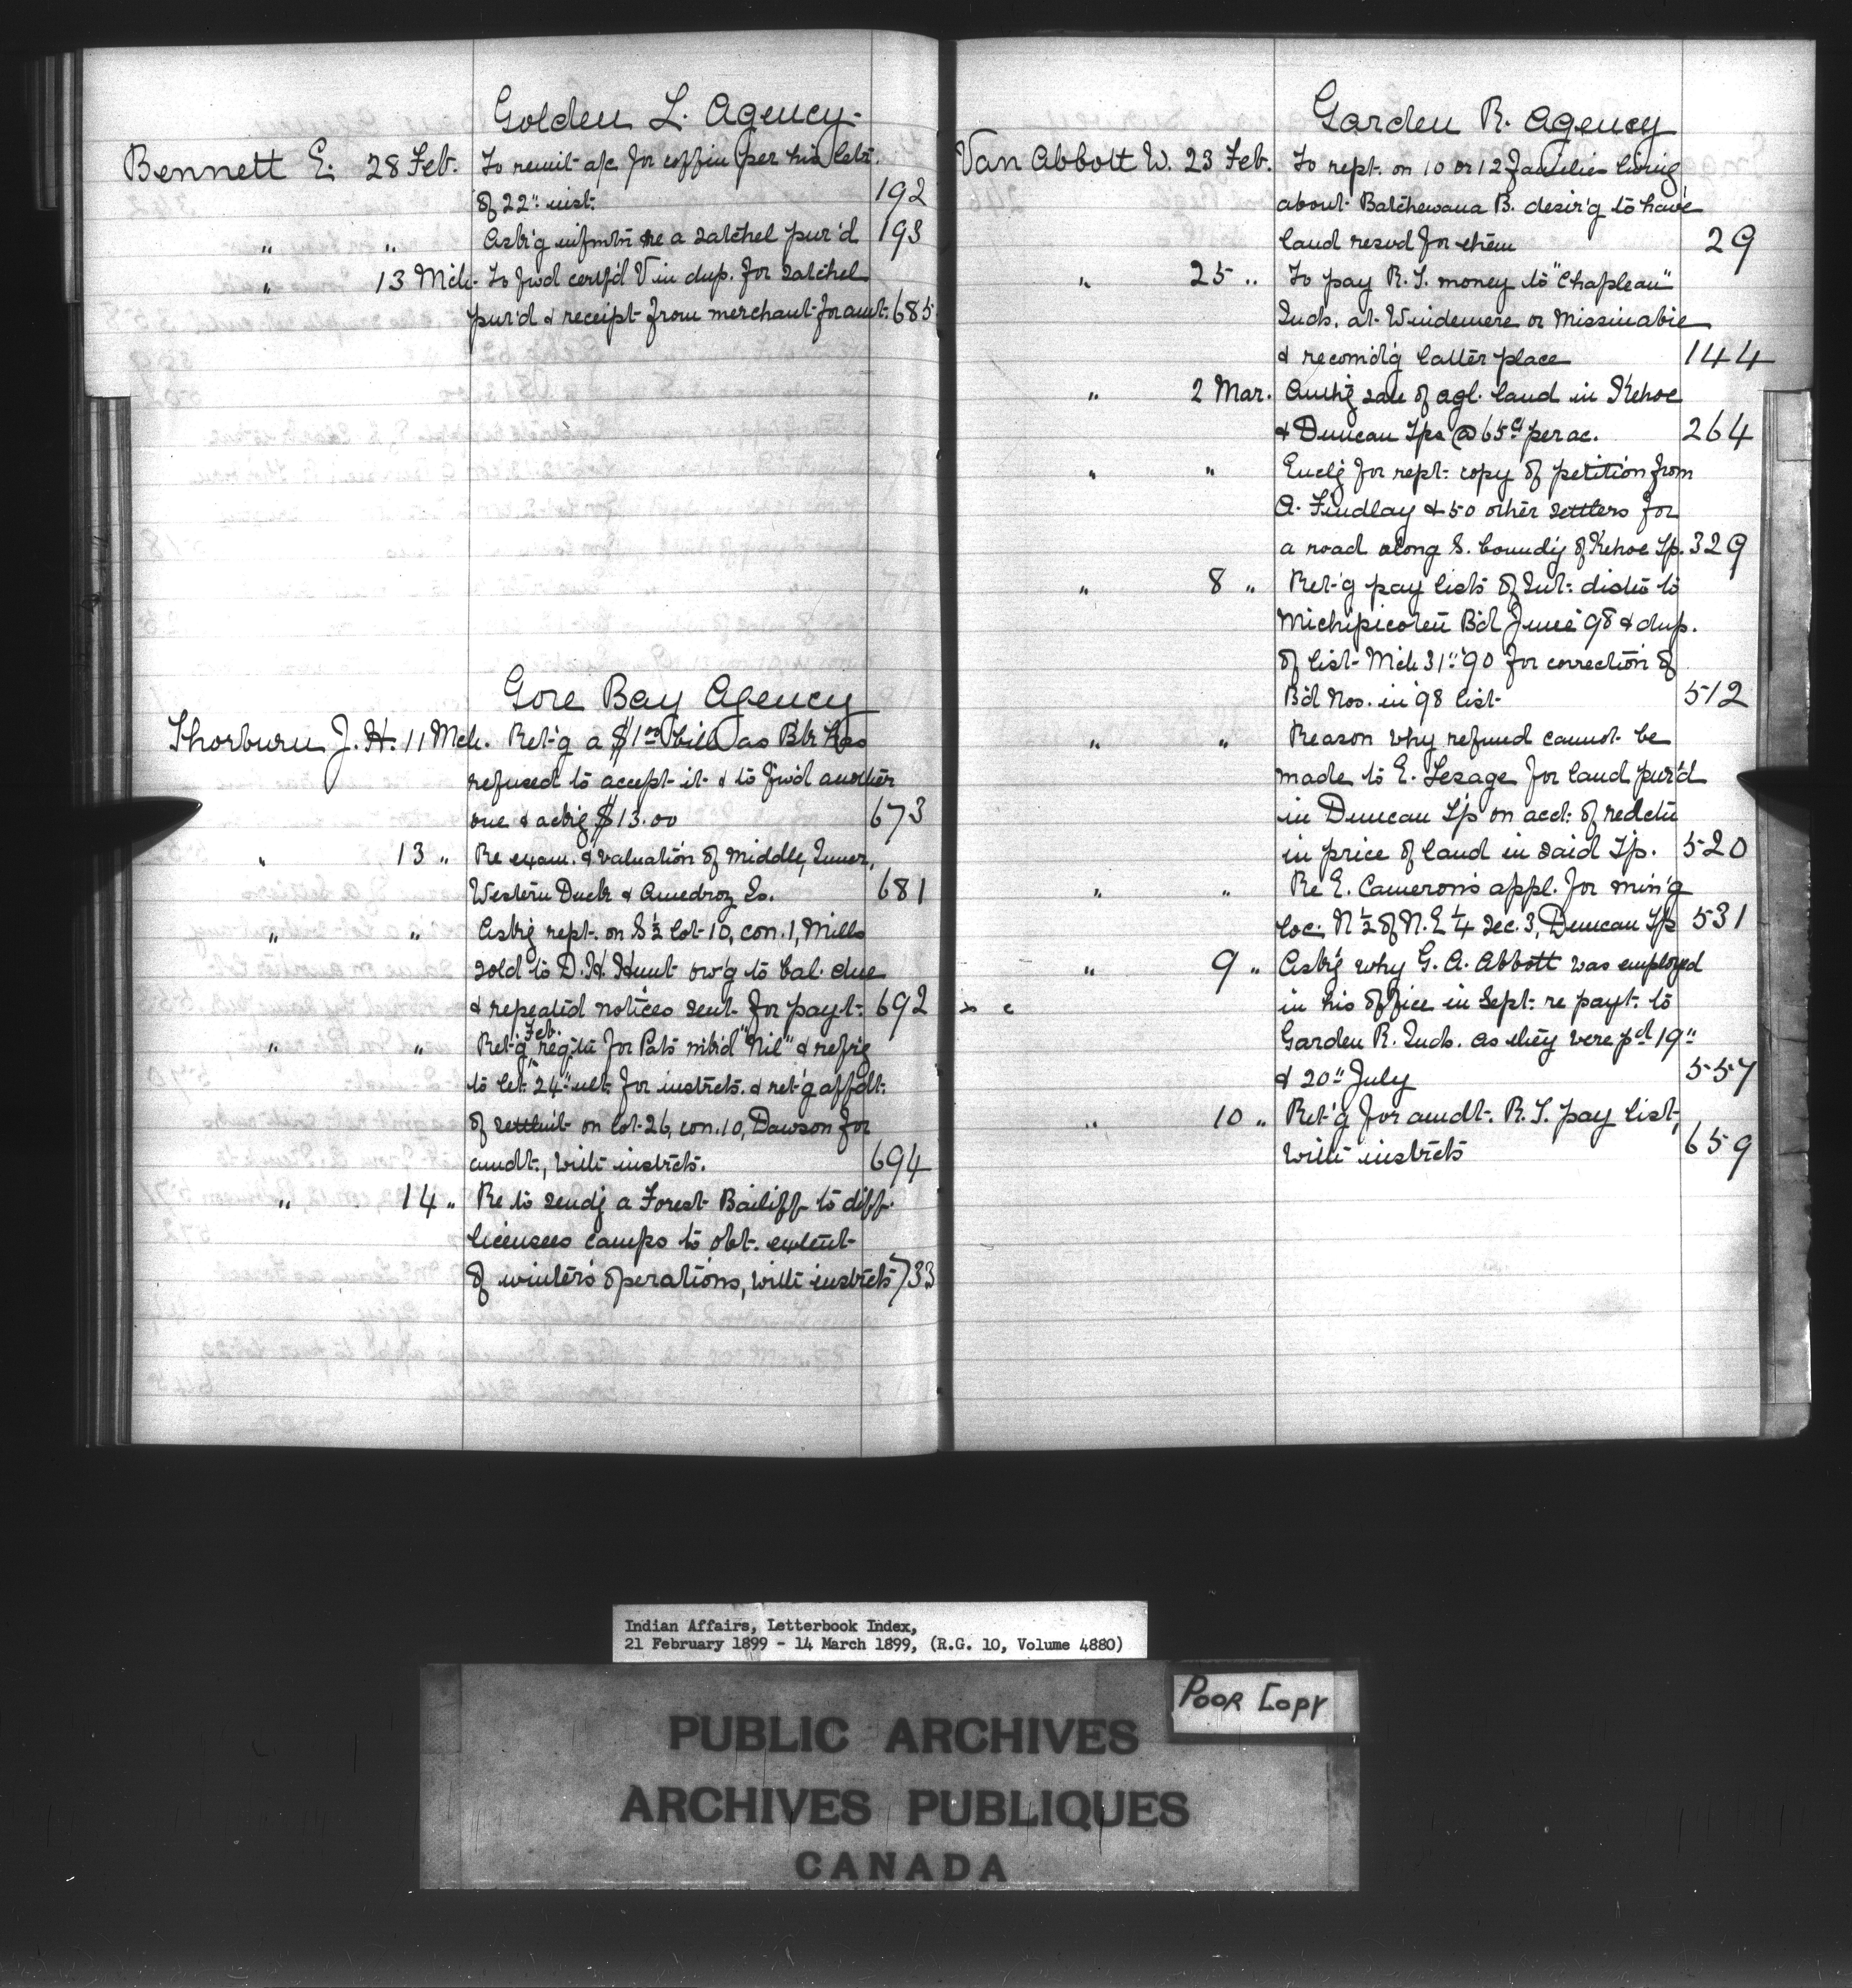 Golden L. Agency.
Bennett E. 28 Feb. To remit a/c for coffin per his letr.
of 22" inst. 192
" " Ask'g infmtn re a satchel pur'd 193
" 13 Mch. To fwd certf'd V in dup. for satchel
pur'd & receipt from merchant for amt. 685
Gore Bay Agency
Thorburn J. H. 11 Mch. Ret'g a $1 00 bill as Bk has
refused to accept it & to fwd another
one & ackg $13.00 673
" 13 " Re exam. & valuation of Middle, Inner,
Western Duck & Amedroz Is. 681
" " Askg rept. on S ½ lot 10, con. 1, Mills
sold to D. H. Hunt ow'g to bal. due
& repeated notices sent for payt. 692
" " Ret'g Feb. regtn for Pats mk'd "Nil" & refg
to let. 24" ult. for instrcts. & ret'g affdt.
of settlmt on lot 26, con. 10, Dawson for
amdt., with instrcts. 694
" 14 " Re to sendg a Forest Bailiff to diff.
licensees camps to obt. extent
of winter's operations, with instrcts 733
Garden R. Agency
Van Abbott W. 23 Feb. To rept. on 10 or 12 families living
about Batchewana B. desir'g to have
land resvd for them 29
" 25 " To pay R. T. money to "Chapleau"
Inds. at Windemere or Missinabie
& recomd'g latter place 144
" 2 Mar. Authg sale of agl. land in Kehoe
& Duncan Tps @ 65c per ac. 264
" " Enclg for rept. copy of petition from
A. Findlay & 50 other settlers for
a road along S. boundy of Kehoe Tp. 329
" 8 " Ret'g pay lists of Int. distn to
Michipicoten Bd June '98 & dup.
of list Mch 31" '90 for correction of
Bd Nos. in '98 list 512
" " Reason why refund cannot be
made to E. Lesage for land pur'd
in Duncan T'p on acct. of redctn
in price of land in said Tp. 520
" " Re E. Cameron's appl. for min'g
loc. N ½ of N. E ¼ Sec. 3, Duncan Tp 531
" 9 " Askg why G. A. Abbott was employed
in his office in Sept. re payt. to
Garden R. Inds. as they were pd 19"
& 20" July 557
" 10 " Ret'g for amdt. R. T. pay list,
with instrcts 659
Indian Affairs, Letterbook Index,
21 February 1899 - 14 March 1899, (R.G. 10, Volume 4880)
Poor Copy
PUBLIC ARCHIVES
ARCHIVES PUBLIQUES
CANADA